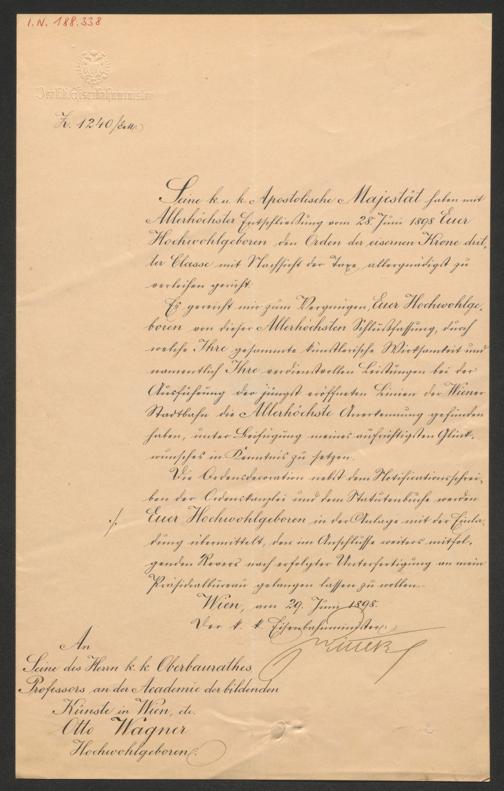 I.N. 188.338
Der k.k. Eisenbahnminister
Z. 1240
Seine k. u. k. Apostolische Majestät haben mit
Allerhöchster Entschließung vom 28. Juni 1898 Euer
Hochwohlgeboren den Orden der eisernen Krone drit-
ter Classe mit Nachsicht der Taxe allergnädigst zu
verleihen geruht.
Es gereicht mir zum Vergnügen, Euer Hochwohlge-
boren von dieser Allerhöchsten Schlußfassung, durch
welche Ihre gesammte künstlerische Wirksamkeit und
namentlich Ihre verdienstvollen Leistungen bei der
Ausführung der jüngst eröffneten Linien der Wiener
Stadtbahn die Allerhöchste Anerkennung gefunden
haben, unter Beifügung meines aufrichtigsten Glück-
wunsches in Kenntnis zu setzen.
Die Ordensdecoration nebst dem Notificationsschrei-
ben der Ordenskanzlei und dem Statutenbuche werden
./. Euer Hochwohlgeboren in der Anlage mit der Einla-
dung übermittelt, den im Anschlusse weiters mitfol-
genden Revers nach erfolgter Unterfertigung an mein
Präsidialbureau gelangen lassen zu wollen.
Wien, am 29. Juni 1898.
Der k. k. Eisenbahnminister:
An
Seine des Herrn k. k. Oberbaurathes,
Professors an der Academie der bildenden
Künste in Wien, etc.
Otto Wagner
Hochwohlgeboren.